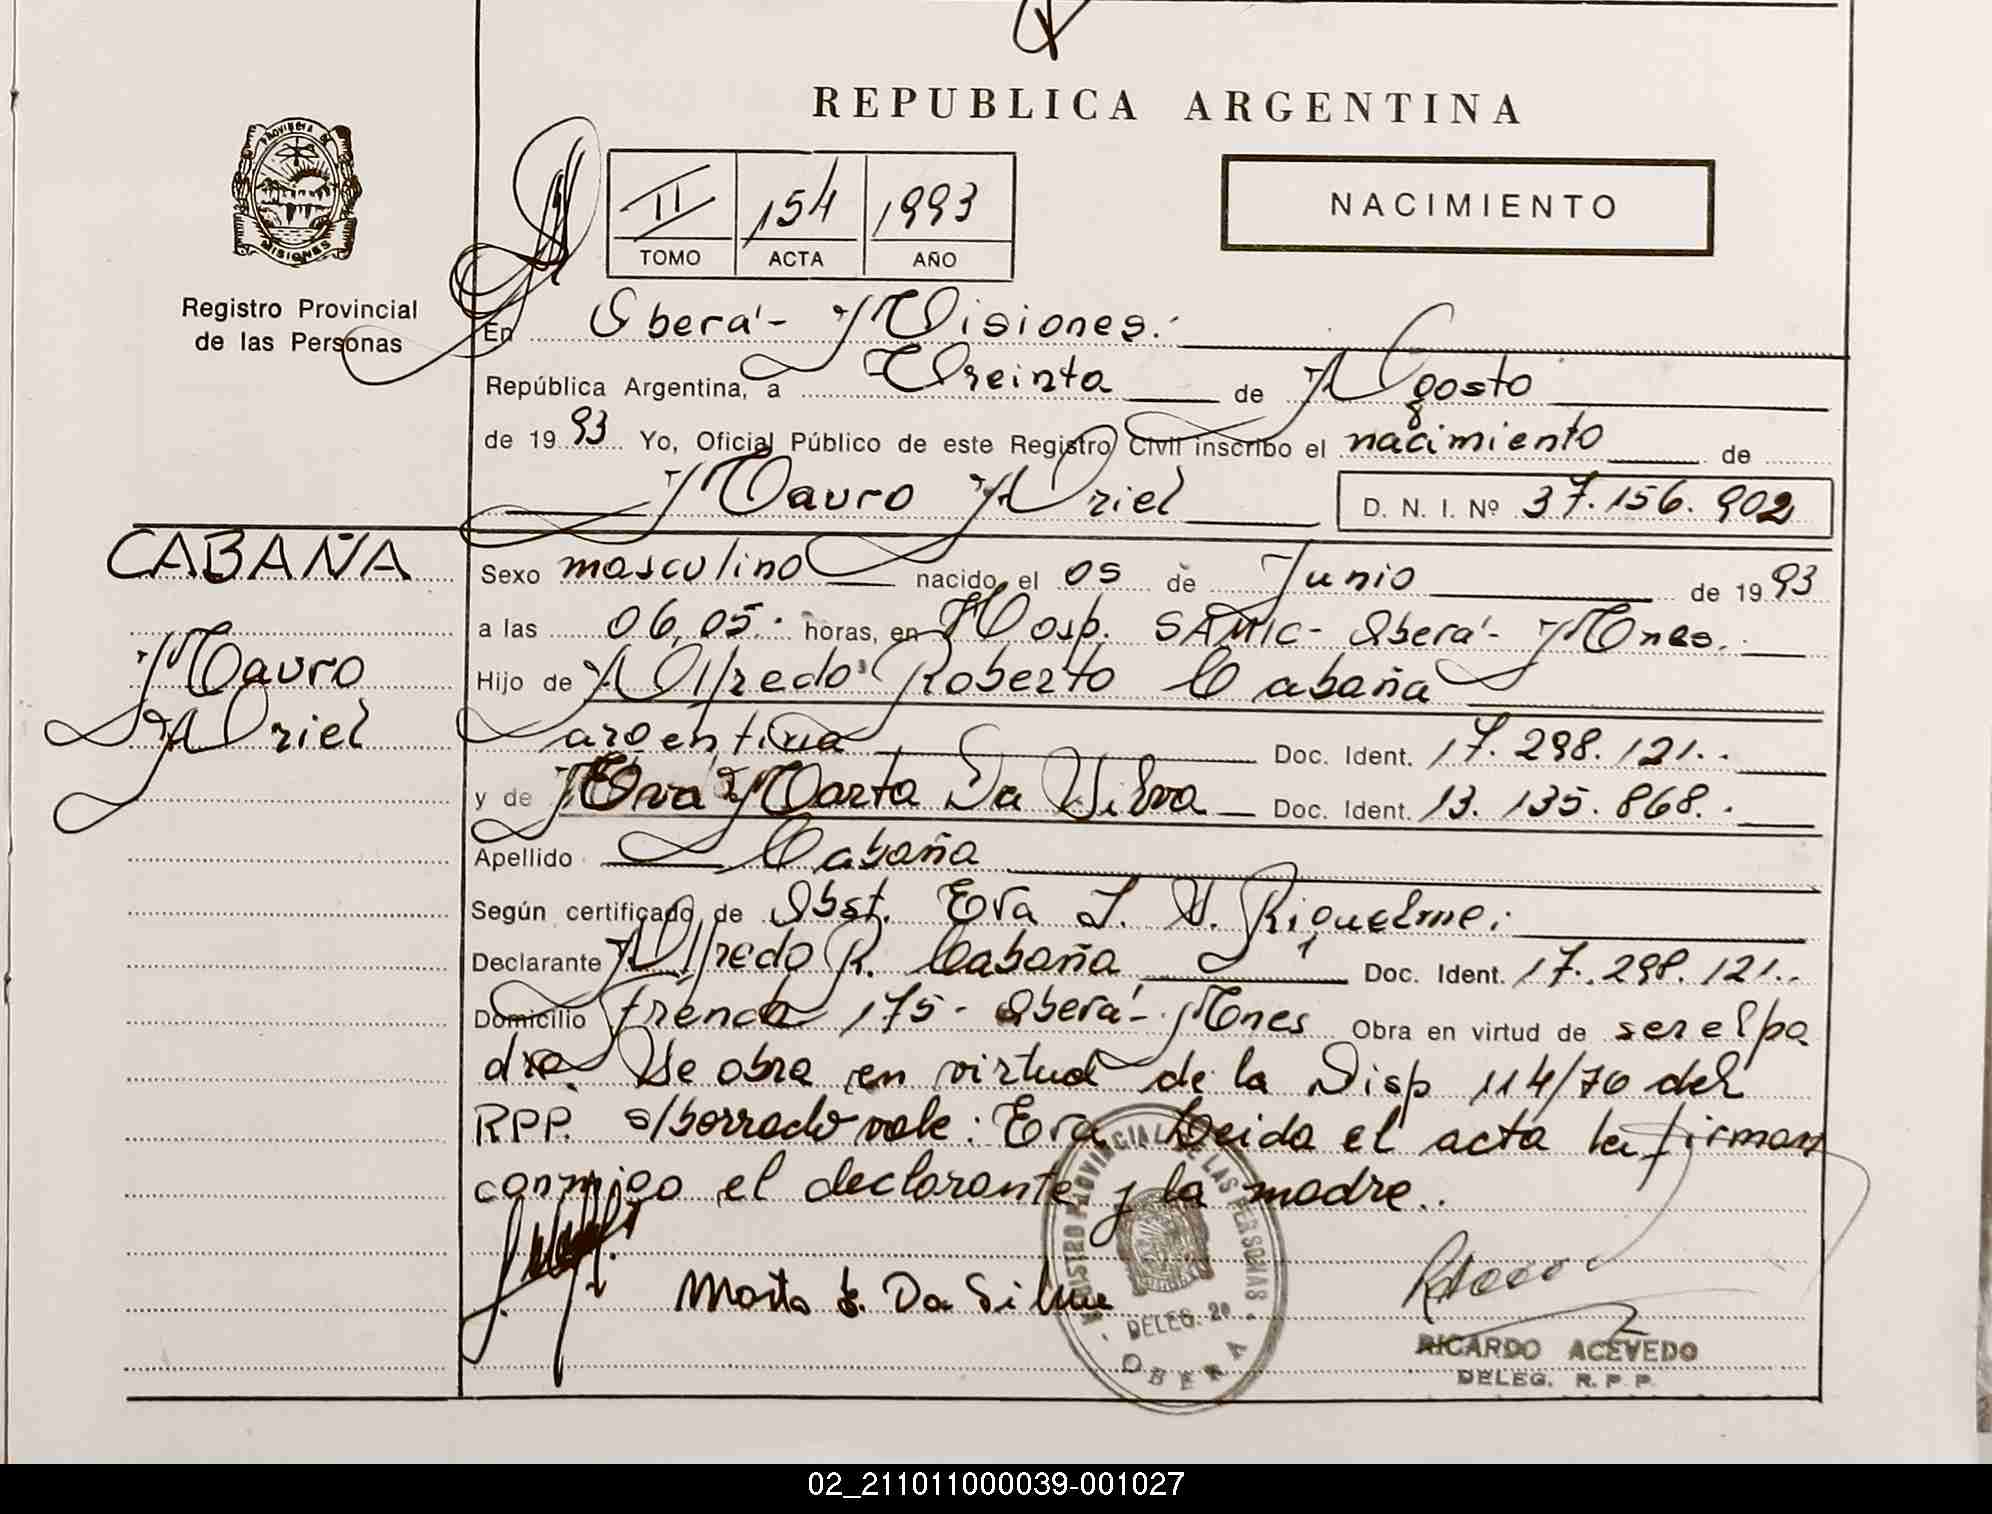 REPUBLICA ARGENTINA
PROVINCIA DE
MISIONES
Registro Provincial
de las Personas
II 154 1993
TOMO ACTA AÑO
NACIMIENTO
En Oberá - Misiones.
República Argentina, a Treinta de Agosto
de 1993 Yo, Oficial Público de este Registro Civil inscribo el nacimiento de
Mauro Ariel D. N. I. Nº 37.156.902
CABAÑA
Mauro
Ariel
Sexo masculino nacido el 05 de Junio de 1993
a las 06,05. horas, en Hosp. SAMIC - Oberá - Mnes.
Hijo de Alfredo Roberto Cabaña
argentina Doc. Ident. 17.298.121..
y de Eva Marta Da Silva Doc. Ident. 13.135.868..
Apellido Cabaña
Según certificado de Obst. Eva I. Riquelme.
Declarante Alfredo R. Cabaña Doc. Ident. 17.298.121..
Domicilio French 175 - Oberá - Mnes Obra en virtud de ser el pa
dre. Se obra en virtud de la Disp 114/76 del
RPP. s/borrado vale: Eva. Leida el acta la firman
conmigo el declarante y la madre..
Marta E. Da Silva
REGISTRO PROVINCIAL DE LAS PERSONAS
DELEG. 20
OBERA
RICARDO ACEVEDO
DELEG. R. P. P.
02_211011000039-001027